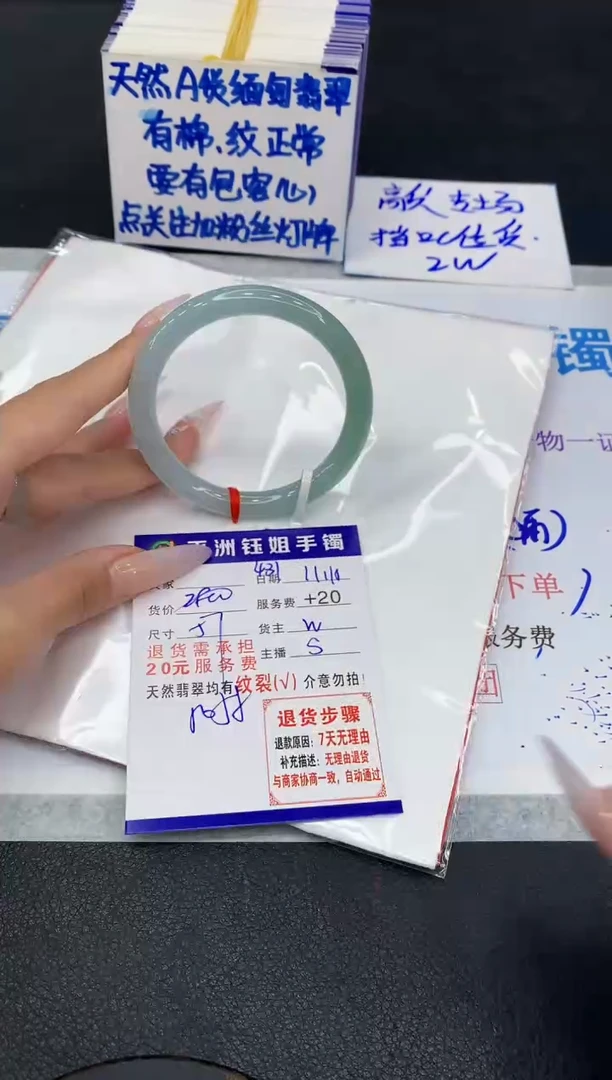 天然A货缅甸翡翠
有棉、纹正常
要有包容心
点关注加粉丝灯牌
2W
镯
物一证
下单
服务费
洲钰姐手镯
日期 11/10
货价
服务费 +20
尺寸 57
货主 W
退货需承担
20元服务费
主播 S
天然翡翠均有纹裂(√) 介意勿拍!
退货步骤
退款原因:7天无理由
补充描述:无理由退货
与商家协商一致,自动通过